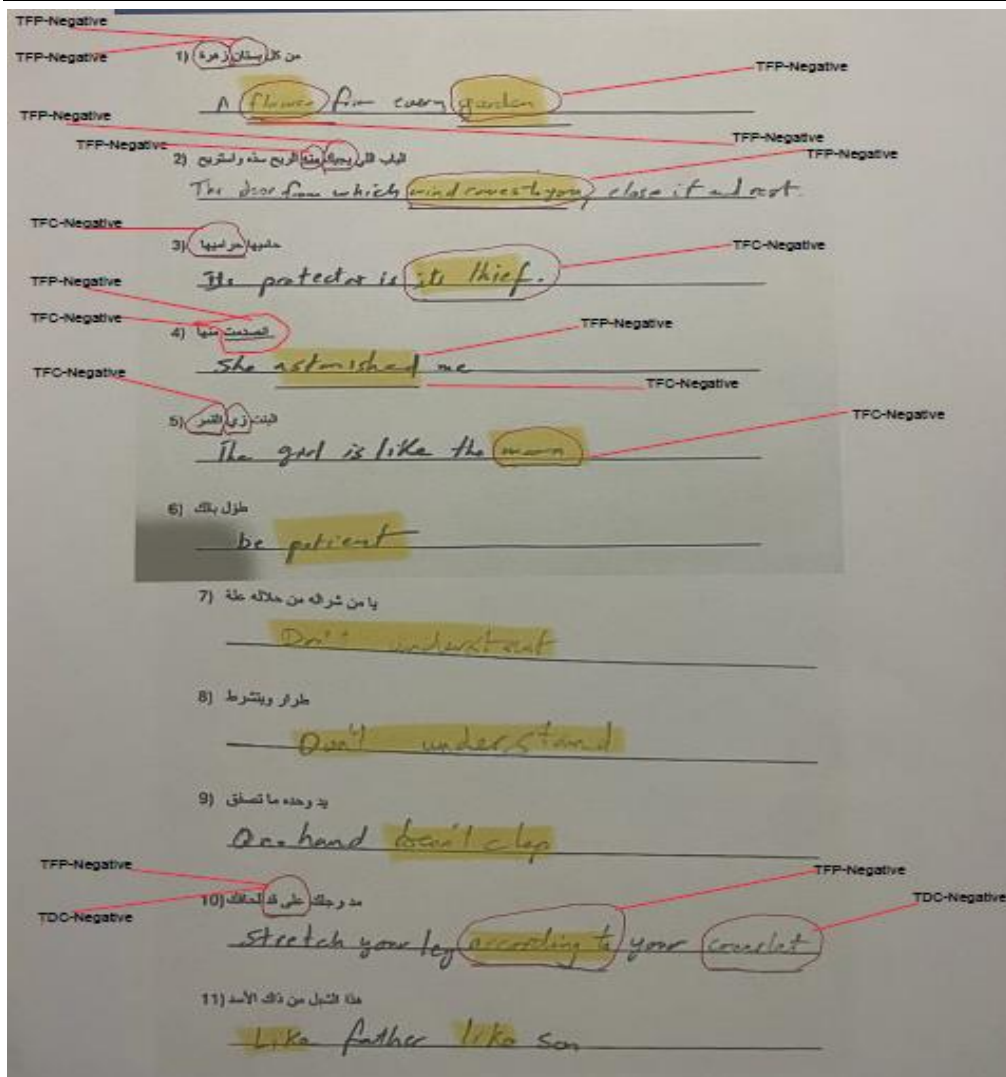 TFP-Negative
TFP-Negative
1) من كل بستان زهرة
TFP-Negative
A flower from every garden
TFP-Negative
TFP-Negative
TFP-Negative
TFP-Negative
2) الباب اللي يجيك منه الريح سده واستريح
The door from which wind comes to you, close it and rest.
TFC-Negative
3) حاميها حراميها
TFC-Negative
Its protector is its thief.
TFP-Negative
TFC-Negative
4) انصدمت منها
TFP-Negative
She astonished me
TFC-Negative
TFC-Negative
5) البنت زي القمر
TFC-Negative
The girl is like the moon
6) طول بالك
be patient
7) يا من شراله من حلاله علة
Don't
8) طرار ويتشرط
Don't understand
9) يد وحده ما تصفق
One hand doesn't clap
TFP-Negative
TFP-Negative
10) مد رجلك على قد لحافك
TDC-Negative
TDC-Negative
Stretch your leg according to your
11) هذا الشبل من ذاك الأسد
Like father like son